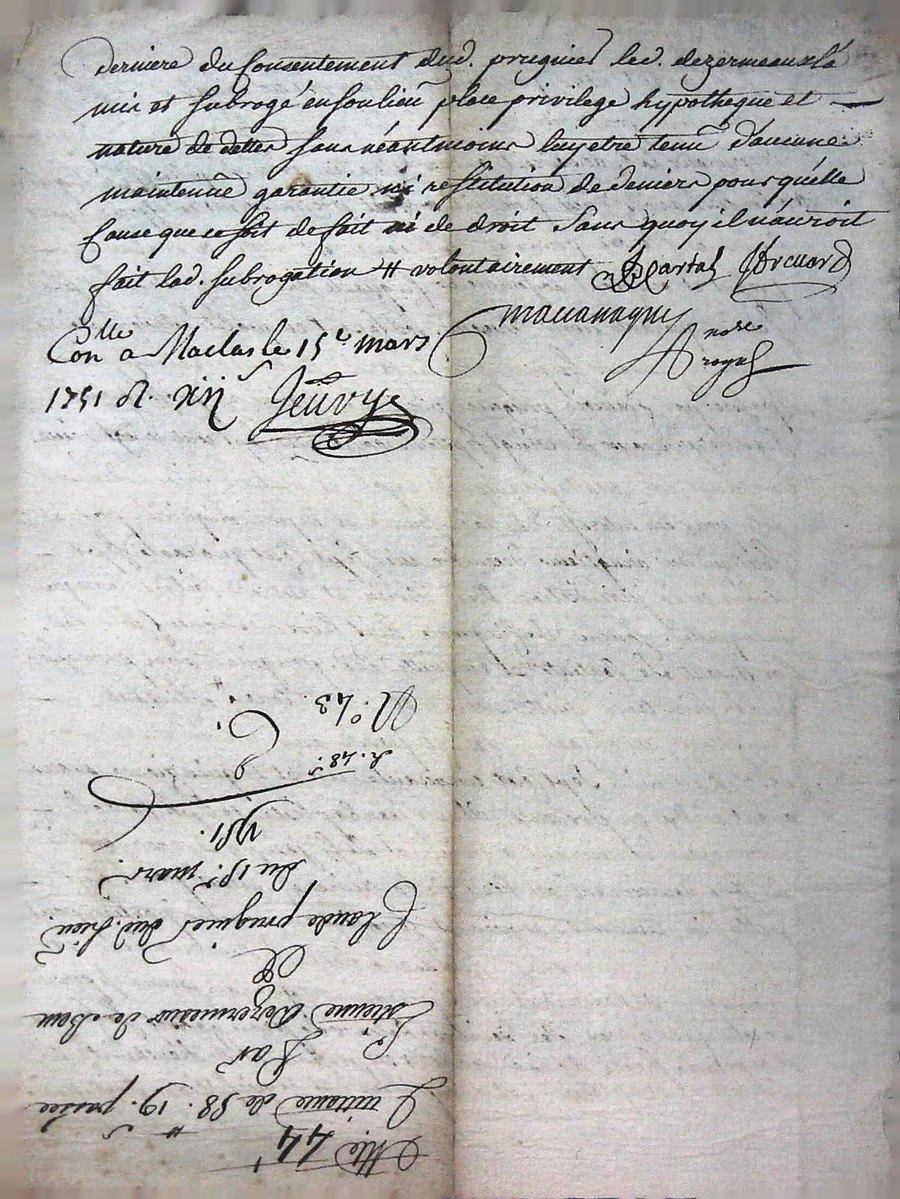 derniere du Consentement dud. prugnies led. dezermeaux la
mis et subrogé en son lieu place privilege hypotheque et
nature de dettes sans néantmoins luy etre tenu d'aucune
maintenüe garantie ni restitution de deniers pour quelle
Cause que ce soit de fait ni de droit Sans quoy il nauroit
fait lad. subrogation # volontairement
nore
royal
Conlle a Maclas le 15e mars
1751 R. xii s
Jeuvy
Quittance de 58 # 19 s passée
Par
Estienne Dezermeaux de
a
Claude prugnies dud. lieu
du 15e mars
1751.
N.o 43